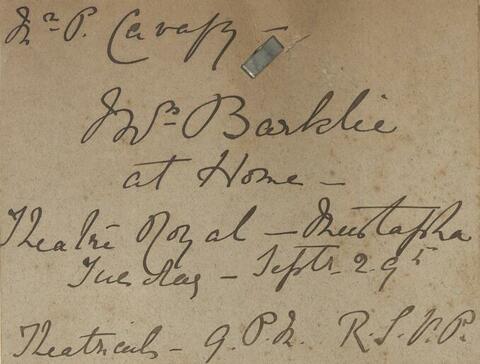 Mr P. Cavafy —
Mrs Barklie
at Home —
Theatre Royal — Mustapha
Tuesday — Septr 29th
Theatricals — 9. P.M. R.S.V.P.